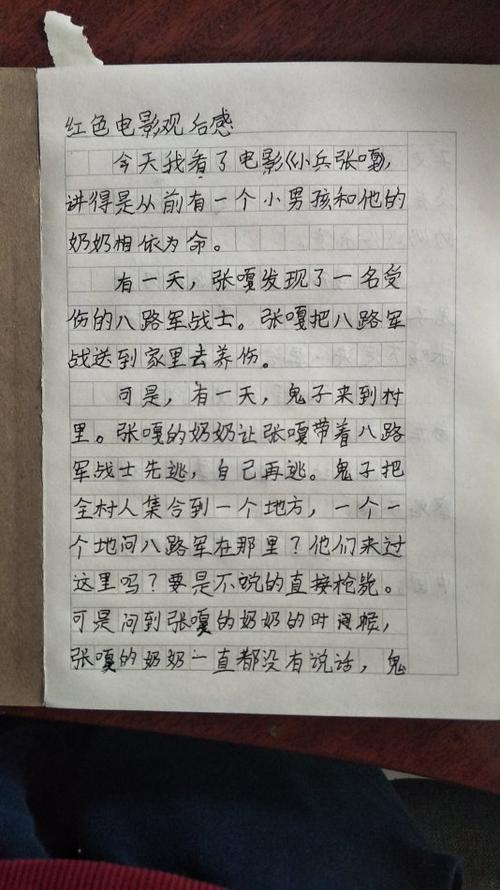 红色电影观后感
今天我看了电影《小兵张嘎》,
讲得是从前有一个小男孩和他的
奶奶相依为命。
有一天，张嘎发现了一名受
伤的八路军战士。张嘎把八路军
战送到家里去养伤。
可是，有一天，鬼子来到村
里。张嘎的奶奶让张嘎带着八路
军战士先逃，自己再逃。鬼子把
全村人集合到一个地方，一个一
个地问八路军在那里？他们来过
这里吗？要是不说的直接枪毙。
可是问到张嘎的奶奶的时间候，
张嘎的奶奶一直都没有说话，鬼